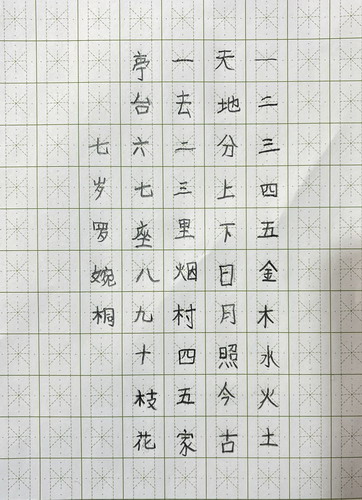 一二三四五金木水火土
天地分上下日月照今古
一去二三里烟村四五家
亭台六七座八九十枝花
七岁罗婉桐